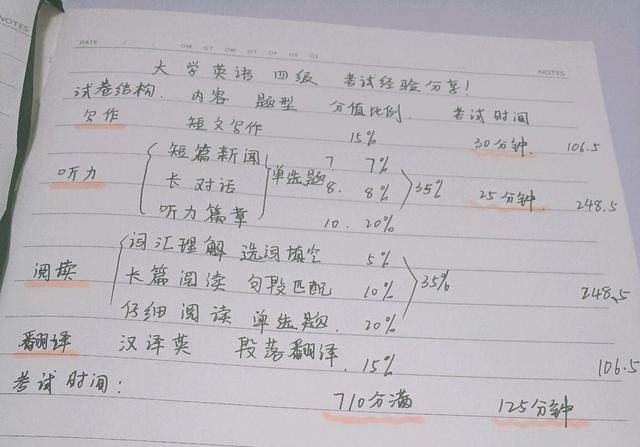 NOTES
DATE
MO TU WE TH FR SA SU
NOTES
大学英语 四级 考试经验分享!
试卷结构. 内容 题型 分值比例. 考试时间
写作 短文写作 15% 30分钟. 106.5
短篇新闻 7 7%
听力 长对话 单选题 8. 8% 35% 25分钟. 248.5
听力篇章 10. 20%
词汇理解 选词填空 5%
阅读 长篇阅读 句段匹配 10% 35% 248.5
仔细阅读 单选题. 20%
翻译 汉译英 段落翻译. 15% 106.5
考试时间: 710分满 125分钟